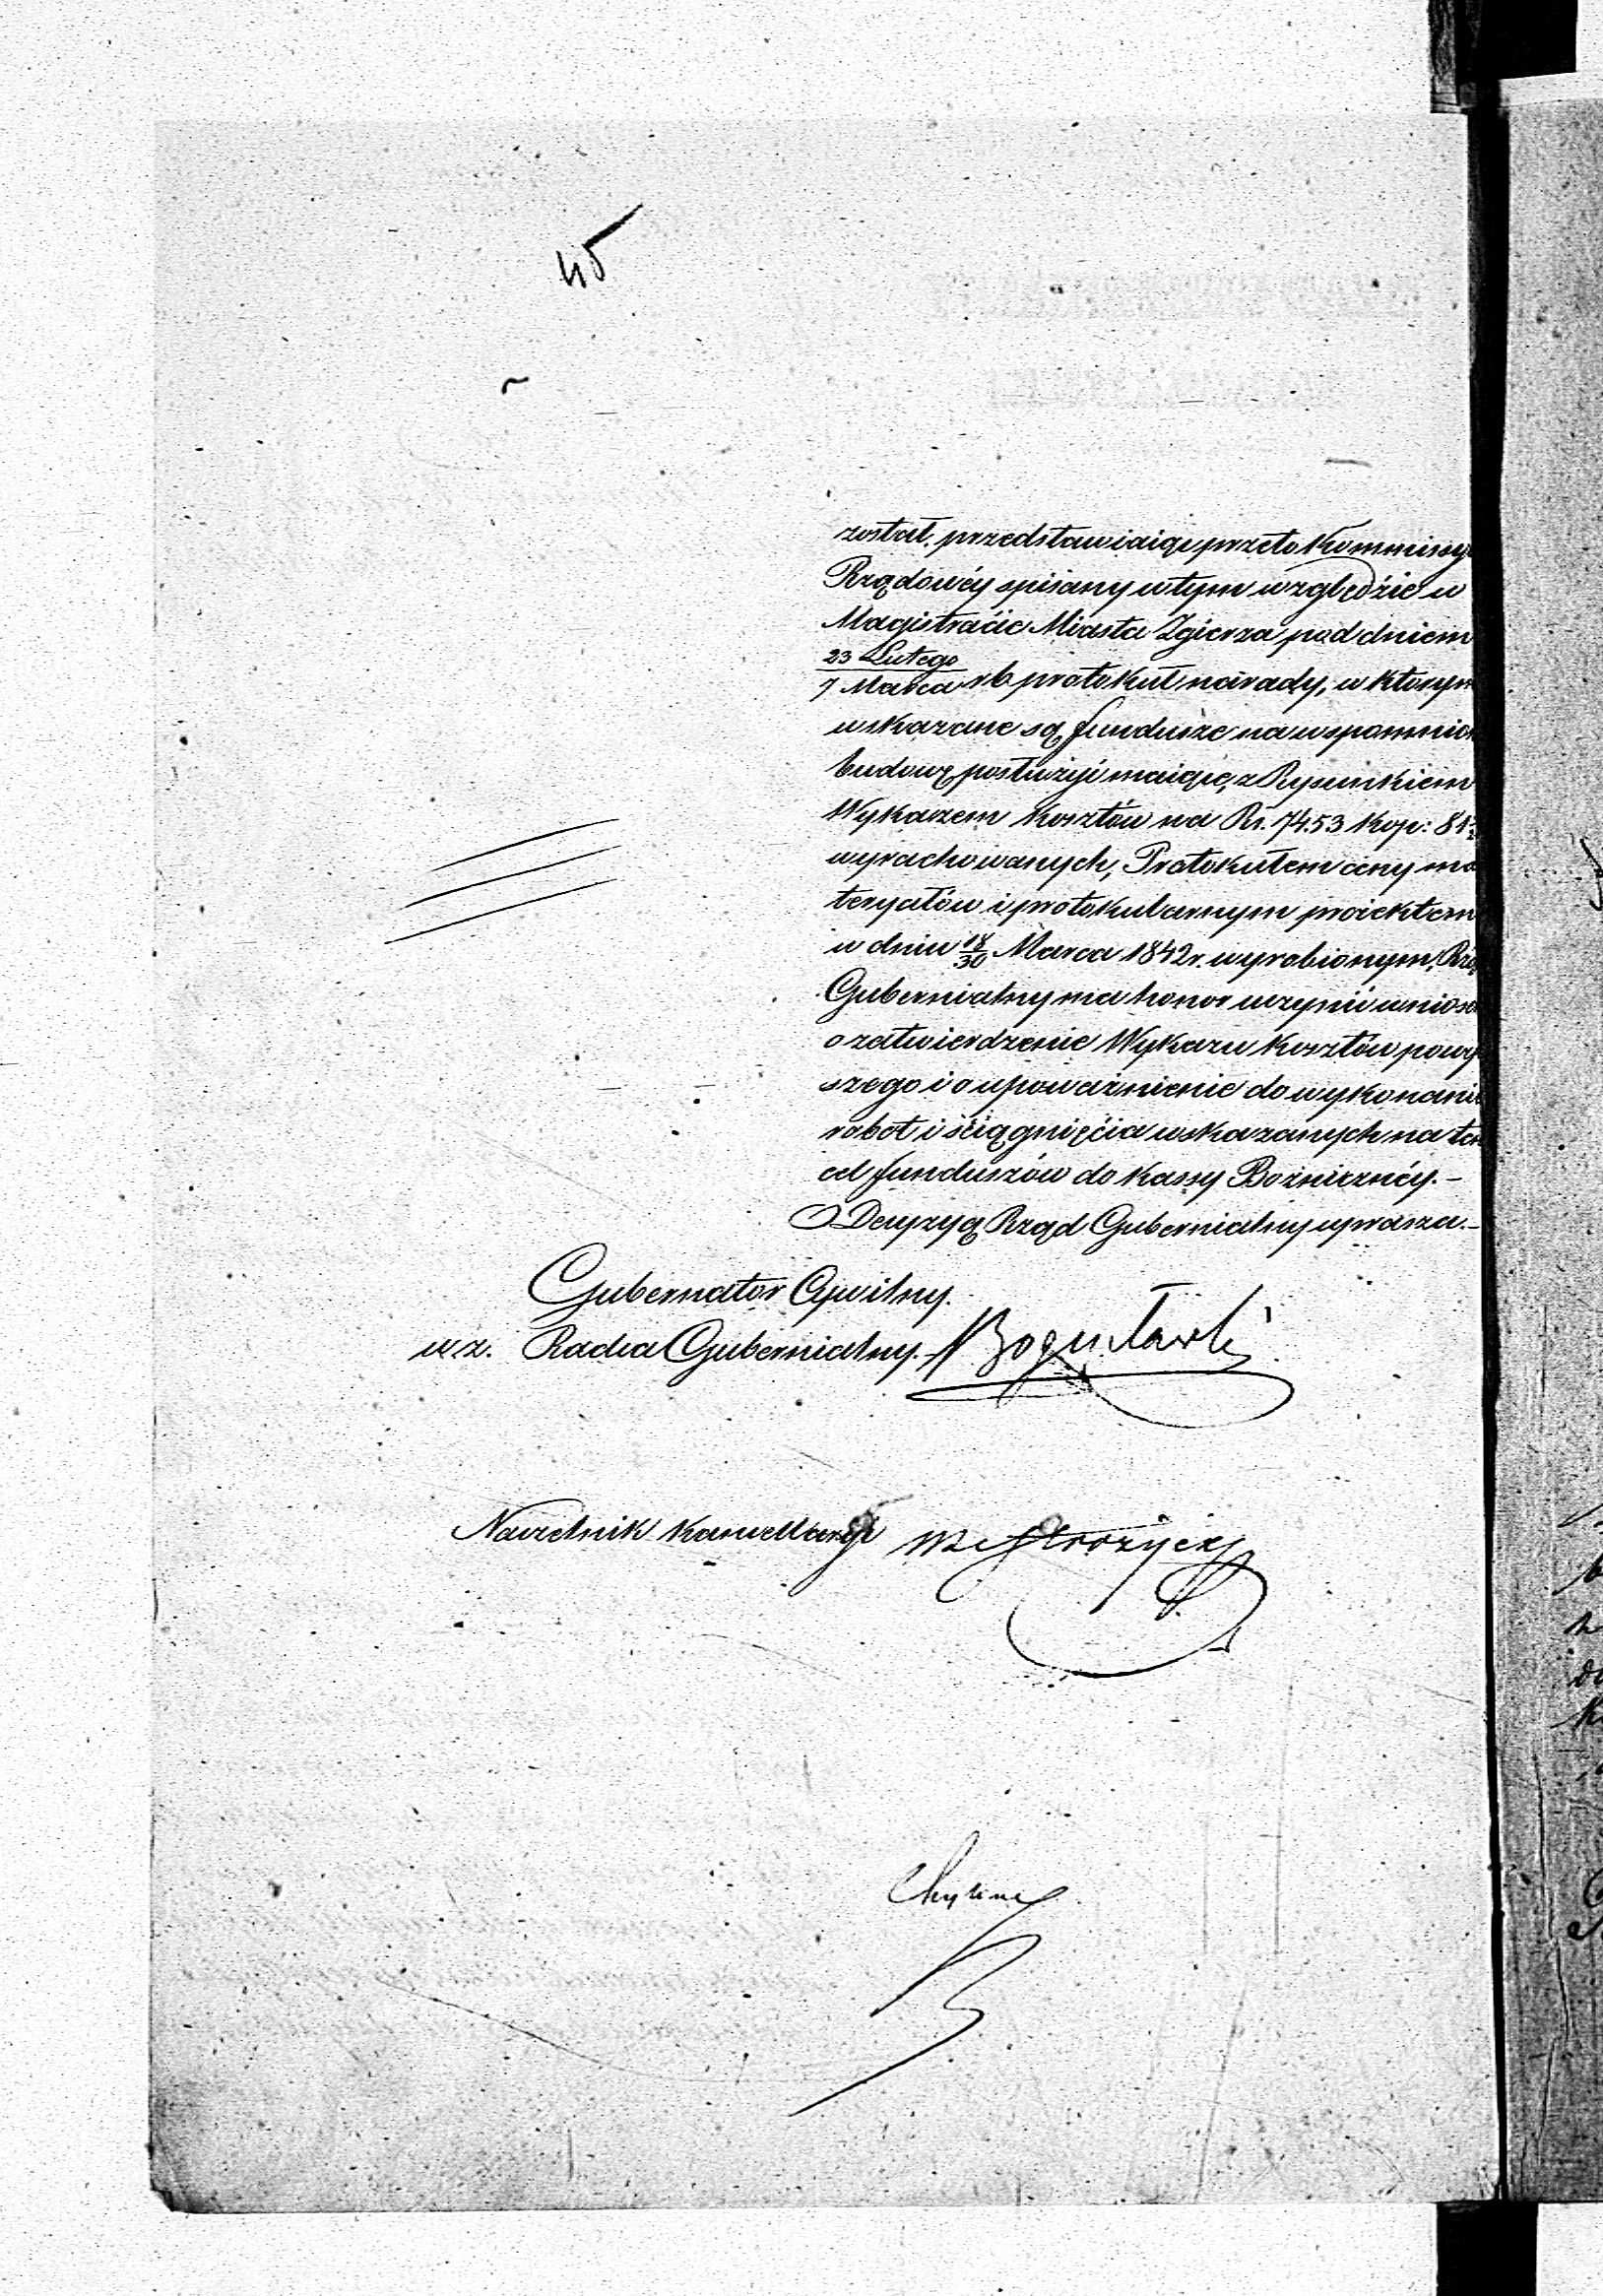 45
został, przedstawiaiąc przeto Kommissy
Rządowéy spisany w tym względzie w
Magistracie Miasta Zgierza pod dniem
23 Lutego
7 Marca rb protokuł narady, w którym
wskazane są fundusze na wspomnion
budowę posłużyć maiące, z Rysunkiem
Wykazem kosztów na Rs. 7453 kop: 81½
wyrachowanych, Protokułem ceny ma
teryałów i protokularnym proiektem
w dniu 18/30 Marca 1842 r. wyrobionym, Rzą
Gubernialny ma honor uczynić wnios
o zatwierdzenie Wykazu kosztów powy
szego i o upoważnienie do wykonani
robót i ściągnięcia wskazanych na ten
cel funduszów do kassy Bożnicznéy.–
O Decyzyą Rząd Gubernialny uprasza.–
Gubernator Cywilny.
w z. Radca Gubernialny. Bogusławski
Naczelnik Kancellaryi